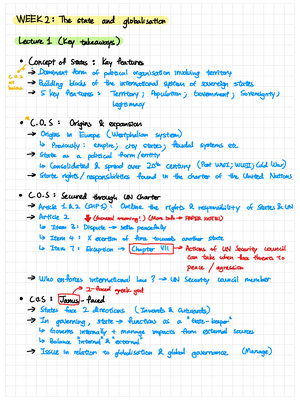 WEEK 2: The state and globalisation
Lecture 1 (Key takeaways)
• Concept of States: Key features
→ Dominant form of political organisation involving territory
→ Building blocks of the international system of sovereign states
→ 5 key features: Territory, Population, Government, Sovereignty,
Legitimacy
• C.O.S: Origins & expansion
→ Origins in Europe (Westphalian system)
↳ Previously: empires, city states, feudal systems etc
→ State as a political form/entity
↳ Consolidated & spread over 20th century (Post WWI; WWII; Cold War)
→ State rights/responsibilities found in the charter of the United Nations
• C.O.S: Secured through UN Charter
→ Article 1 & 2 : Outline the rights & responsibility of States & UN
→ Article 2
↳ Item 3: Dispute → settle peacefully
↳ Item 4: X exertion of force towards another state
↳ Item 7: Exception → Chapter VII → Actions of UN Security council
can take when face threats to
peace / agression
→ Who enforces international law? → UN Security council member
2-faced greek god
• C.O.S: Janus-faced
→ States face 2 directions (Inwards & outwards)
→ In governing, state → functions as a "gate-keeper"
↳ Governs internally + manage impacts from external sources
↳ Balance "internal" & "external"
→ Issue in relation to globalisation & global governance (Manage)